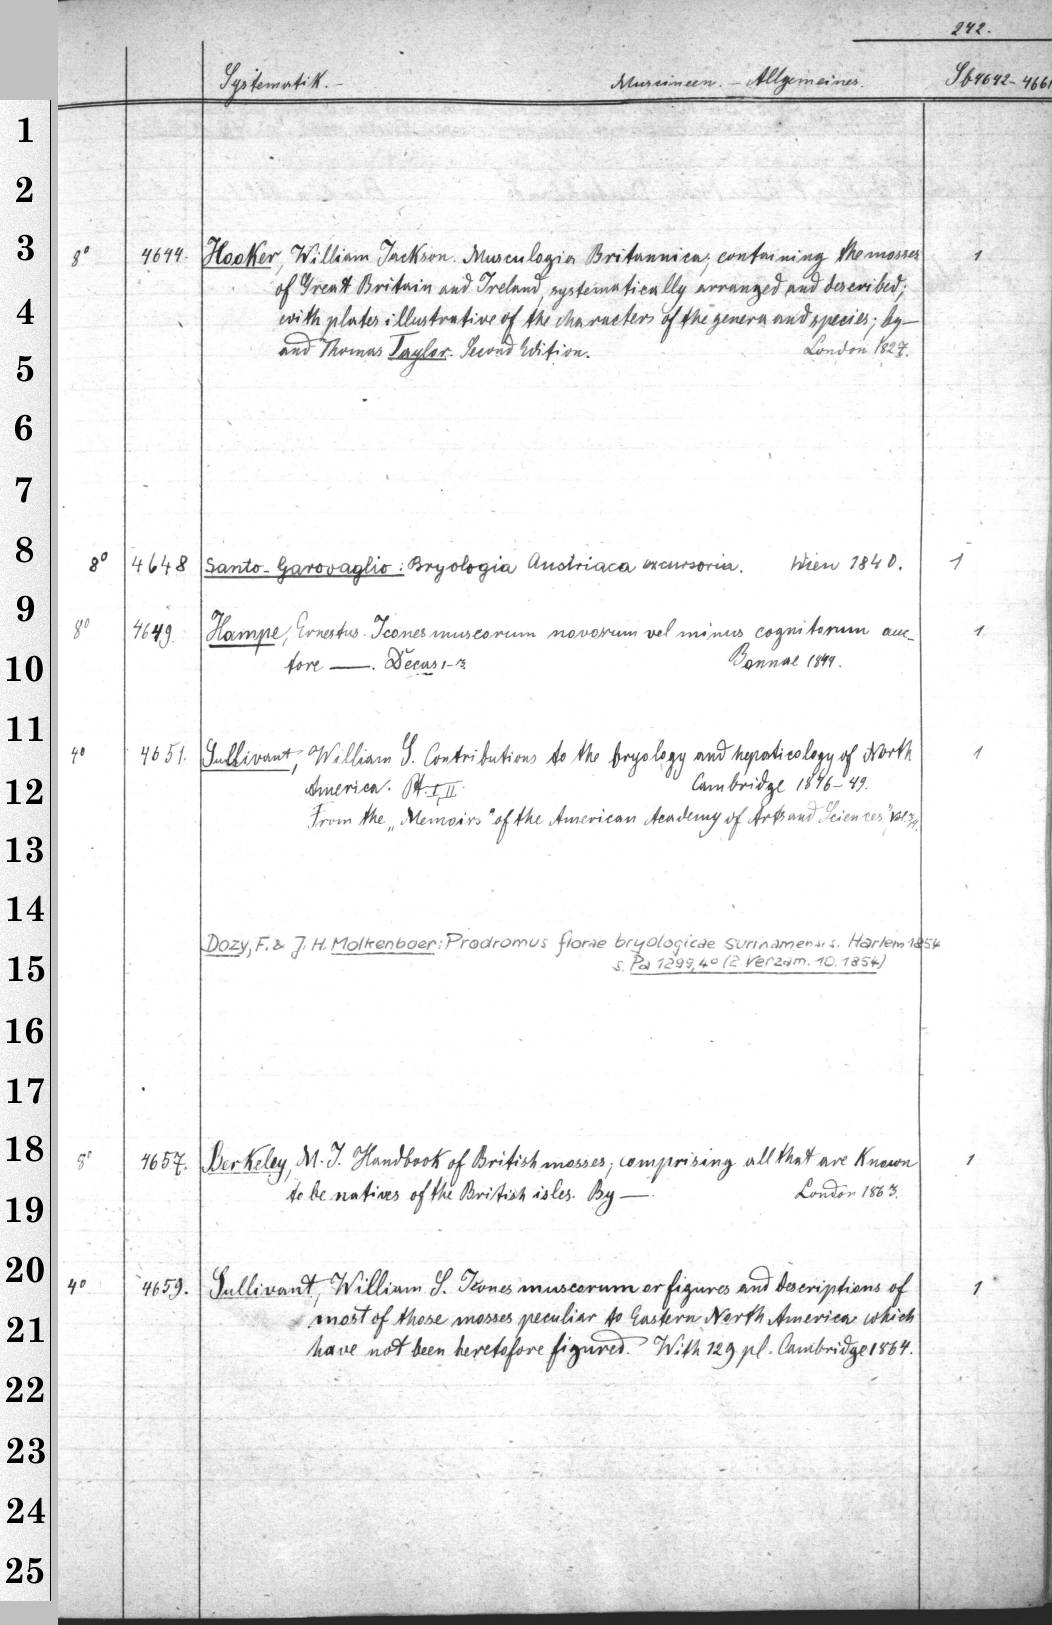 242.
Systematik. — Muscineen. — Allgemeines. Sb 4642-4661
1
2
3
8° 4644. Hooker, William Jackson. Muscologia Britannica; containing the mosses 1
of Great Britain and Ireland, systematically arranged and described;
4
with plates illustrative of the characters of the genera and species; by —
and Thomas Taylor. Second Edition. London 1827.
5
6
7
8
8° 4648 Santo-Garovaglio: Bryologia Austriaca excursoria. Wien 1840. 1
9
8° 4649. Hampe, Ernestus. Icones muscorum novorum vel minus cognitorum auc- 1
10
tore —. Decas 1-3 Bonnae 1844.
11
4° 4651. Sullivant, William S. Contributions to the bryology and hepaticology of North 1
12
America. Pt. I, II. Cambridge 1846-49.
From the „Memoirs" of the American Academy of Arts and Sciences"
13
14
Dozy, F. & J. H. Molkenboer: Prodromus florae bryologicae surinamensis. Harlem 1854
15
s. Pa 1299, 4° (2. Verzam. 10. 1854)
16
17
18
8° 4657. Berkeley, M. J. Handbook of British mosses; comprising all that are known 1
19
to be natives of the British isles. By —. London 1863.
20
4° 4659. Sullivant, William S. Icones muscorum or figures and descriptions of 1
21
most of those mosses peculiar to Eastern North America which
have not been heretofore figured. With 129 pl. Cambridge 1864.
22
23
24
25